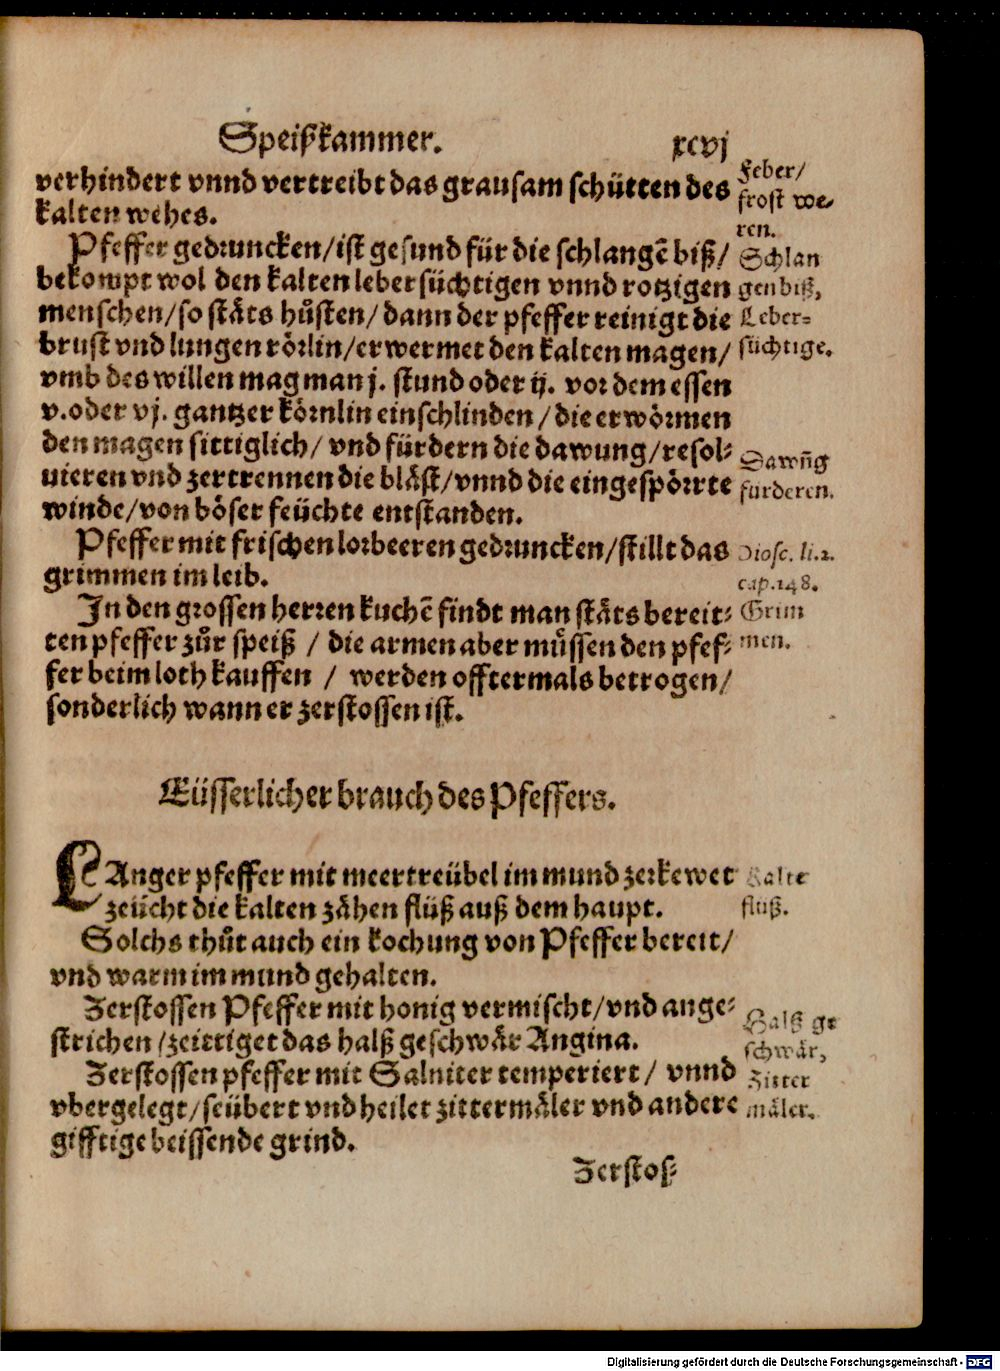 Speißkammer. xcvj
verhindert vnnd vertreibt das grausam schütten des
kalten wehes.
Feber/
frost we-
ren.
Pfeffer gedruncken/ist gesund für die schlangē biß/
bekompt wol den kalten lebersüchtigen vnnd rotzigen
menschen/so stäts hůsten/dann der pfeffer reinigt die
brust vnd lungen rörlin/erwermet den kalten magen/
vmb des willen mag man j. stund oder ij. vor dem essen
v.oder vj. gantzer körnlin einschlinden/die erwörmen
den magen sittiglich/vnd fürdern die dawung/resol-
uieren vnd zertrennen die bläst/vnnd die eingespörrte
winde/von böser feüchte entstanden.
Schlan
gen biß,
Leber-
süchtige.
Dawūg
fürderen.
Pfeffer mit frischen lorbeeren gedruncken/stillt das
grimmen im leib.
Diosc. li.2.
cap.148.
Grim
men.
In den grossen herren kuchē findt man stäts bereit-
ten pfeffer zůr speiß / die armen aber müssen den pfef-
fer beim loth kauffen / werden offtermals betrogen/
sonderlich wann er zerstossen ist.
Eüsserlicher brauch des Pfeffers.
LAnger pfeffer mit meertreübel im mund zerkewet
zeücht die kalten zähen flüß auß dem haupt.
Kalte
fluß.
Solchs thůt auch ein kochung von Pfeffer bereit/
vnd warm im mund gehalten.
Zerstossen Pfeffer mit honig vermischt/vnd ange-
strichen/zeittiget das halß geschwär Angina.
Halß ge
schwär,
Zerstossen pfeffer mit Salniter temperiert/ vnnd
vbergelegt/seübert vnd heilet zittermäler vnd andere
gifftige beissende grind.
Zitter
mäler.
Zerstos-
Digitalisierung gefördert durch die Deutsche Forschungsgemeinschaft - DFG